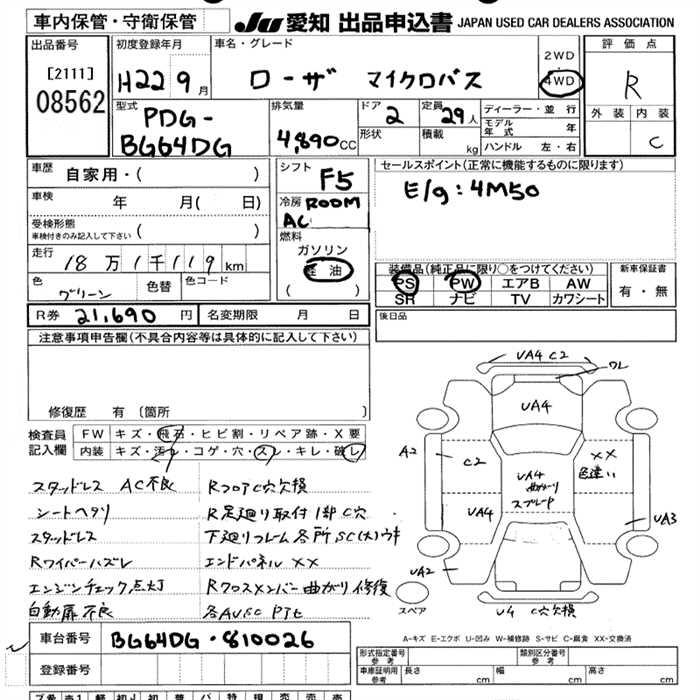 車内保管・守衛保管
JU 愛知 出品申込書 JAPAN USED CAR DEALERS ASSOCIATION
出品番号
[2111]
08562
初度登録年月
H22 9月
車名・グレード
ローザ マイクロバス
2WD
4WD
評価点
R
外装 内装
C
型式
PDG-
BG64DG
排気量
4,890cc
ドア
2
形状
定員
29人
積載
kg
ディーラー・並行
モデル
年式 年
ハンドル 左・右
車歴
自家用・( )
車検
年 月( 日)
受検形態
車検付きのみ記入して下さい ( )
走行
18万1千119km
色
グリーン
色替
色コード
シフト
F5
冷房 ROOM
AC
燃料
ガソリン
軽油
( )
セールスポイント(正常に機能するものに限ります)
E/g:4M50
装備品(純正品に限り○をつけてください)
PS PW エアB AW
SR ナビ TV カワシート
新車保証書
有・無
R券 21,690円
名変期限 月 日
後日品
注意事項申告欄(不具合内容等は具体的に記入して下さい)
修復歴 有 (箇所 )
検査員
記入欄
FW キズ・飛石・ヒビ割・リペア跡・X要
内装 キズ・汚レ・コゲ・穴・スレ・キレ・破レ
スタッドレス AC不良 RフロアC穴欠損
シートヘタリ R足廻り取付1部C穴
スタッドレス 下廻りフレーム各所SC(大)ウキ
Rワイパーハズレ エンドパネルXX
エンジンチェック点灯 Rクロスメンバー曲がり修復
自動扉不良
UA4 C2
ワレ
UA4
A2
C2
UA4
曲がり
スプレーP
XX
色違い
UA4
UA3
UA2
スペア
U4 C穴欠損
A-キズ E-エクボ U-凹み W-補修跡 S-サビ C-腐食 XX-交換済
車台番号
BG64DG・810026
登録番号
形式指定番号
参考
類別区分番号
参考
車庫証明用
参考
長さ
幅
高さ
cm